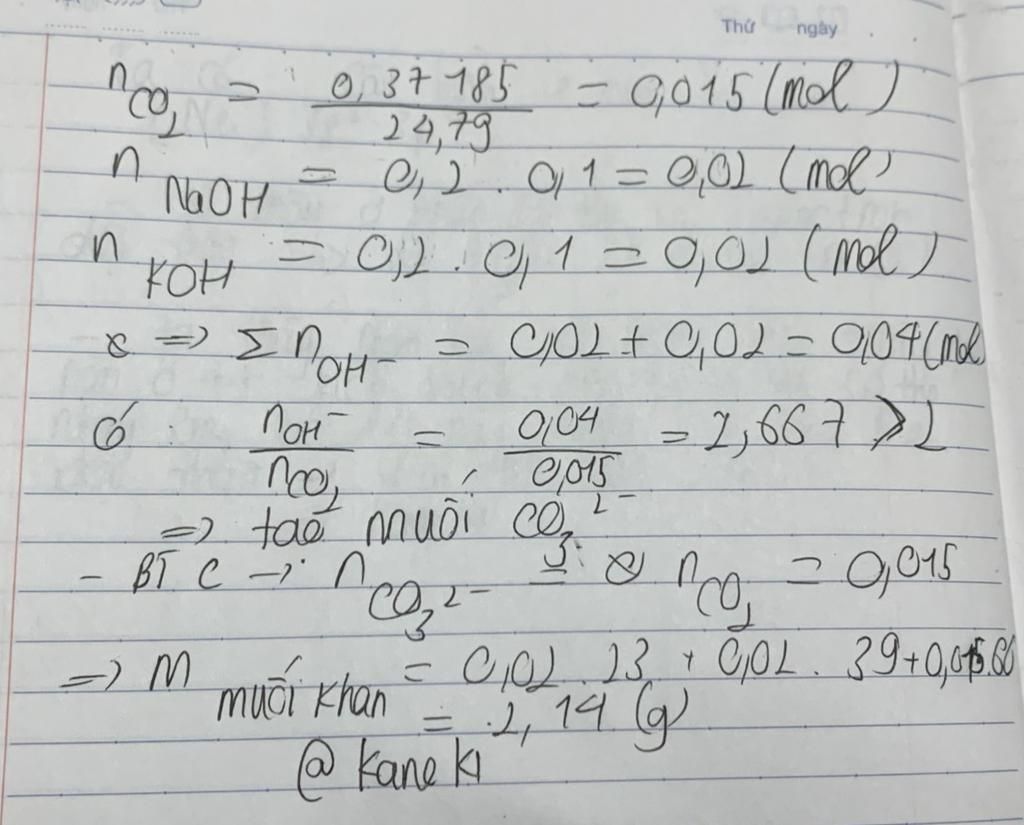 Thứ ngày
n CO2 = 0,37185 / 24,79 = 0,015 (mol)
n NaOH = 0,2 . 0,1 = 0,02 (mol)
n KOH = 0,2 . 0,1 = 0,02 (mol)
=> Σ n OH⁻ = 0,02 + 0,02 = 0,04 (mol
Có nOH⁻ / nCO2 = 0,04 / 0,015 = 2,667 > 2
=> tạo muối CO3²⁻
- BT C → n CO3²⁻ = n CO2 = 0,015
=> m muối khan = 0,02 . 23 + 0,02 . 39 + 0,015.60
= 2,14 (g)
@ kane ki